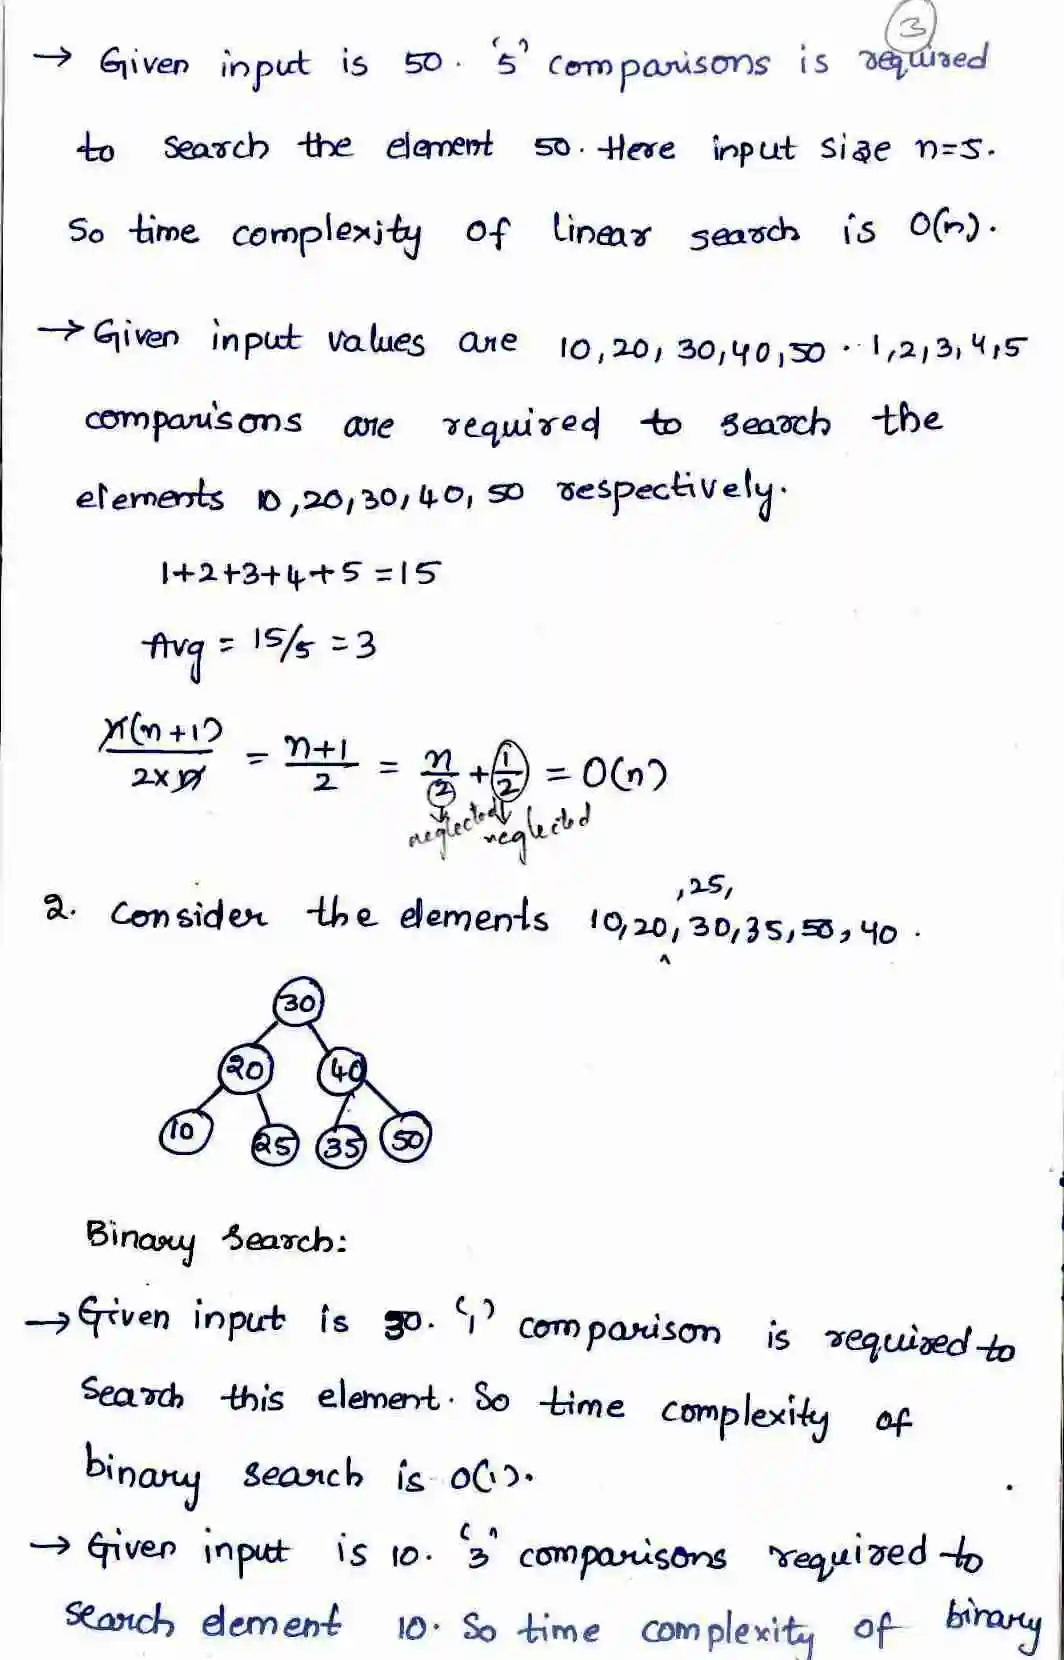 3
→ Given input is 50. '5' comparisons is required
to search the element 50. Here input size n=5.
So time complexity of linear search is O(n).
→ Given input values are 10,20,30,40,50. 1,2,3,4,5
comparisons are required to search the
elements 10,20,30,40,50 respectively.
1+2+3+4+5=15
Avg = 15/5 = 3
n(n+1)/2×n = n+1/2 = n/2 + 1/2 = O(n)
neglected neglected
,25,
2. Consider the elements 10,20,^30,35,50,40.
30
20 40
10 25 35 50
Binary Search:
→ Given input is 30. '1' comparison is required to
Search this element. So time complexity of
binary search is O(1).
→ Given input is 10. '3' comparisons required to
search element 10. So time complexity of binary